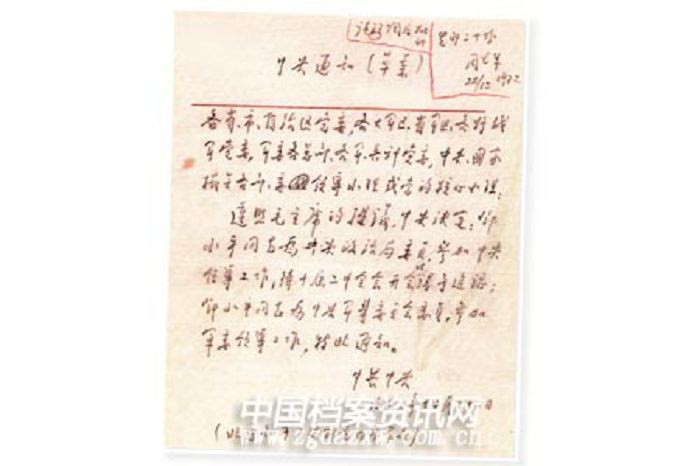 中央通知（草案）
各省、市、自治区党委，各大军区、省军区、各野战
军党委，军委各总部、各军兵种党委，中央、国家
机关各部、委领导小组或党的核心小组：
遵照毛主席的提议，中央决定：邓
小平同志为中央政治局委员，参加中央
领导工作，待十届二中全会开会时追认；
邓小平同志为中央军事委员会委员，参加
军委领导工作。特此通知。
中共中央
中国档案资讯网
www.zgdazxw.com.cn